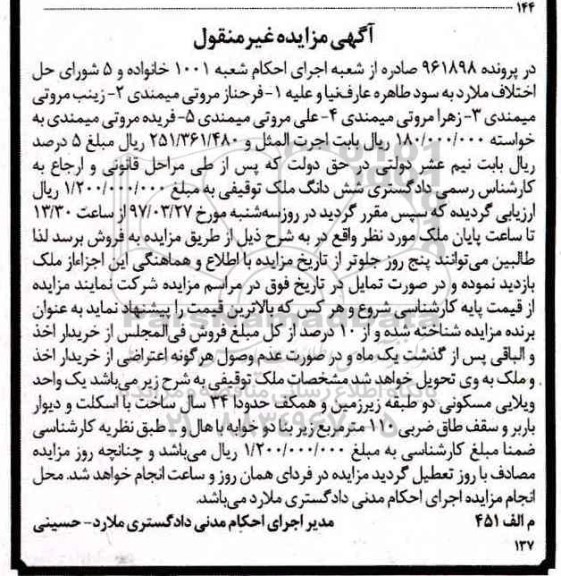 ۱۴۴
آگهی مزایده غیر منقول
در پرونده ۹۶۱۸۹۸ صادره از شعبه اجرای احکام شعبه ۱۰۰۱ خانواده و ۵ شورای حل
اختلاف ملارد به سود طاهره عارف‌نیا و علیه ۱- فرحناز مروتی میمندی ۲- زینب مروتی
میمندی ۳- زهرا مروتی میمندی ۴- علی مروتی میمندی ۵- فریده مروتی میمندی به
خواسته ۱۸۰/۰۰۰/۰۰۰ ریال بابت اجرت المثل و ۲۵۱/۳۶۱/۴۸۰ ریال مبلغ ۵ درصد
ریال بابت نیم عشر دولتی در حق دولت که پس از طی مراحل قانونی و ارجاع به
کارشناس رسمی دادگستری شش دانگ ملک توقیفی به مبلغ ۱/۲۰۰/۰۰۰/۰۰۰ ریال
ارزیابی گردیده که سپس مقرر گردید در روز سه‌شنبه مورخ ۹۷/۰۳/۲۷ از ساعت ۱۳/۳۰
تا ساعت پایان ملک مورد نظر واقع در به شرح ذیل از طریق مزایده به فروش برسد لذا
طالبین می‌توانند پنج روز جلوتر از تاریخ مزایده با اطلاع و هماهنگی این اجرا از ملک
بازدید نموده و در صورت تمایل در تاریخ فوق در مراسم مزایده شرکت نمایند مزایده
از قیمت پایه کارشناسی شروع و هر کس که بالاترین قیمت را پیشنهاد نماید به عنوان
برنده مزایده شناخته شده و از ۱۰ درصد از کل مبلغ فروش فی‌المجلس از خریدار اخذ
و الباقی پس از گذشت یک ماه و در صورت عدم وصول هرگونه اعتراضی از خریدار اخذ
و ملک به وی تحویل خواهد شد مشخصات ملک توقیفی به شرح زیر می‌باشد یک واحد
ویلایی مسکونی دو طبقه زیرزمین و همکف حدودا ۳۴ سال ساخت با اسکلت و دیوار
باربر و سقف طاق ضربی ۱۱۰ متر مربع زیر بنا دو خوابه با هال و ... طبق نظریه کارشناسی
ضمنا مبلغ کارشناسی به مبلغ ۱/۲۰۰/۰۰۰/۰۰۰ ریال می‌باشد و چنانچه روز مزایده
مصادف با روز تعطیل گردید مزایده در فردای همان روز و ساعت انجام خواهد شد. محل
انجام مزایده اجرای احکام مدنی دادگستری ملارد می‌باشد.
م الف ۴۵۱ مدیر اجرای احکام مدنی دادگستری ملارد- حسینی
۱۳۷